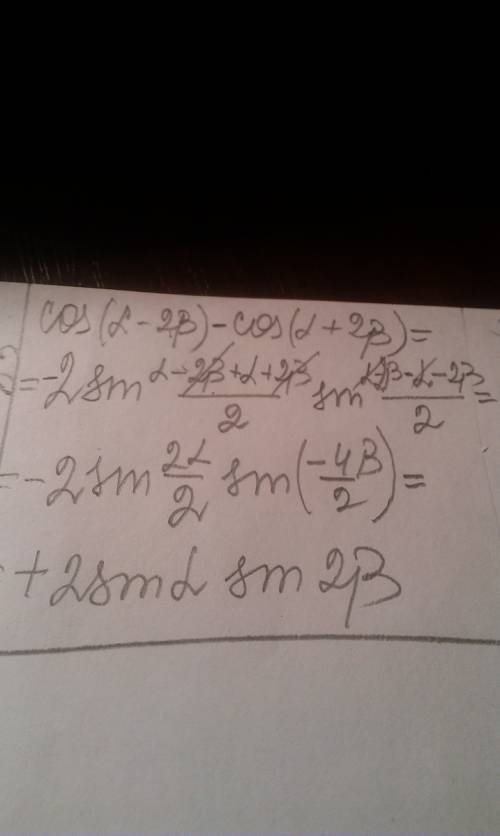 cos(α - 2β) - cos(α + 2β) =
= -2 sin (α - 2β + α + 2β)/2 sin (α - 2β - α - 2β)/2 =
= -2 sin 2α/2 sin(-4β/2) =
= + 2 sin α sin 2β